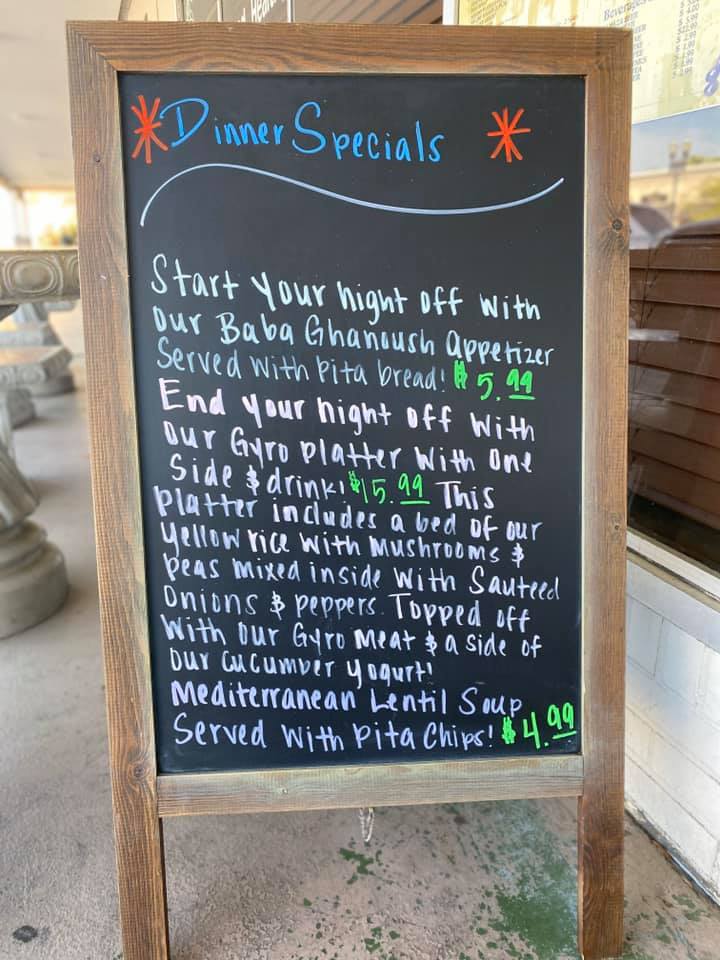 Dinner Specials
Start your night off with
our Baba Ghanoush appetizer
Served with pita bread! $5.99
End your night off with
our Gyro platter with one
Side & drink! $15.99 This
platter includes a bed of our
yellow rice with mushrooms &
peas mixed inside with Sauteed
Onions & peppers. Topped off
with our Gyro meat & a side of
our cucumber yogurt!
Mediterranean Lentil Soup
Served with Pita Chips! $4.99